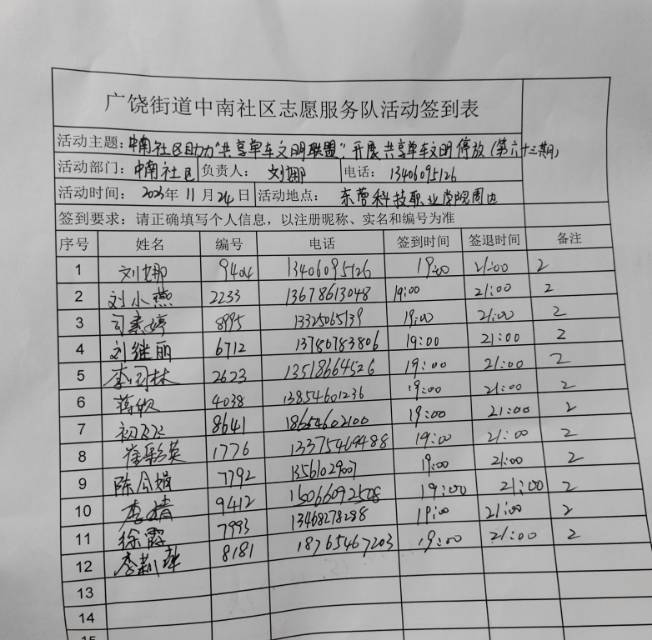 广饶街道中南社区志愿服务队活动签到表
活动主题：中南社区助力“共享单车文明联盟”，开展共享单车文明停放（第六十三期）
活动部门：中南社区 负责人：刘娜 电话：13406095126
活动时间：2023年11月24日 活动地点：东营科技职业学院周边
签到要求：请正确填写个人信息，以注册昵称、实名和编号为准
序号 姓名 编号 电话 签到时间 签退时间 备注
1 刘娜 9404 13406095126 19:00 21:00 2
2 刘小燕 2233 13678613048 19:00 21:00 2
3 司素婷 8995 13325065139 19:00 21:00 2
4 刘继丽 6712 13780783806 19:00 21:00 2
5 李司林 2623 13518664526 19:00 21:00 2
6 蒋 4038 13854601236 19:00 21:00 2
7 初飞飞 8641 18654602100 19:00 21:00 2
8 崔彩英 1776 13375469488 19:00 21:00 2
9 陈会娟 7792 13561029007 19:00 21:00 2
10 李婧 9412 15066092508 19:00 21:00 2
11 徐霞 7993 13468278288 19:00 21:00 2
12 李莉華 8181 18765467203 19:00 21:00 2
13
14
15